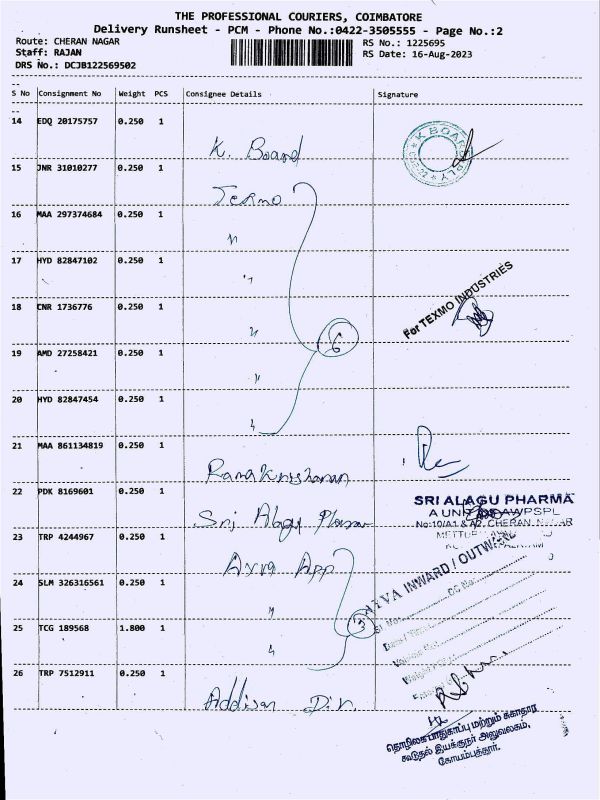 THE PROFESSIONAL COURIERS, COIMBATORE
Delivery Runsheet - PCM - Phone No.:0422-3505555 - Page No.:2
Route: CHERAN NAGAR
RS No.: 1225695
Staff: RAJAN
RS Date: 16-Aug-2023
DRS No.: DCJB122569502
S No Consignment No Weight PCS Consignee Details Signature
14 EDQ 20175757 0.250 1 K. Board
K BOARD PLY
15 JNR 31010277 0.250 1 Texmo
16 MAA 297374684 0.250 1 "
17 HYD 82847102 0.250 1 "
18 CNR 1736776 0.250 1 "
For TEXMO INDUSTRIES
6
19 AMD 27258421 0.250 1 "
20 HYD 82847454 0.250 1 "
21 MAA 861134819 0.250 1 Ramakrishanan
22 PDK 8169601 0.250 1 Sri Alagu Pharma
SRI ALAGU PHARMA
A UNIT OF AWPSPL
No:10/A1 & A2, CHERAN NAGAR
23 TRP 4244967 0.250 1 Aviva App
24 SLM 326316561 0.250 1 "
AVIVA INWARD / OUTWARD
25 TCG 189568 1.800 1 "
3
Sl. No:
DC No:
26 TRP 7512911 0.250 1 Addison Dir.
தொழிலக பாதுகாப்பு மற்றும் சுகாதார
கூடுதல் இயக்குநர் அலுவலகம்,
கோயம்புத்தூர்.